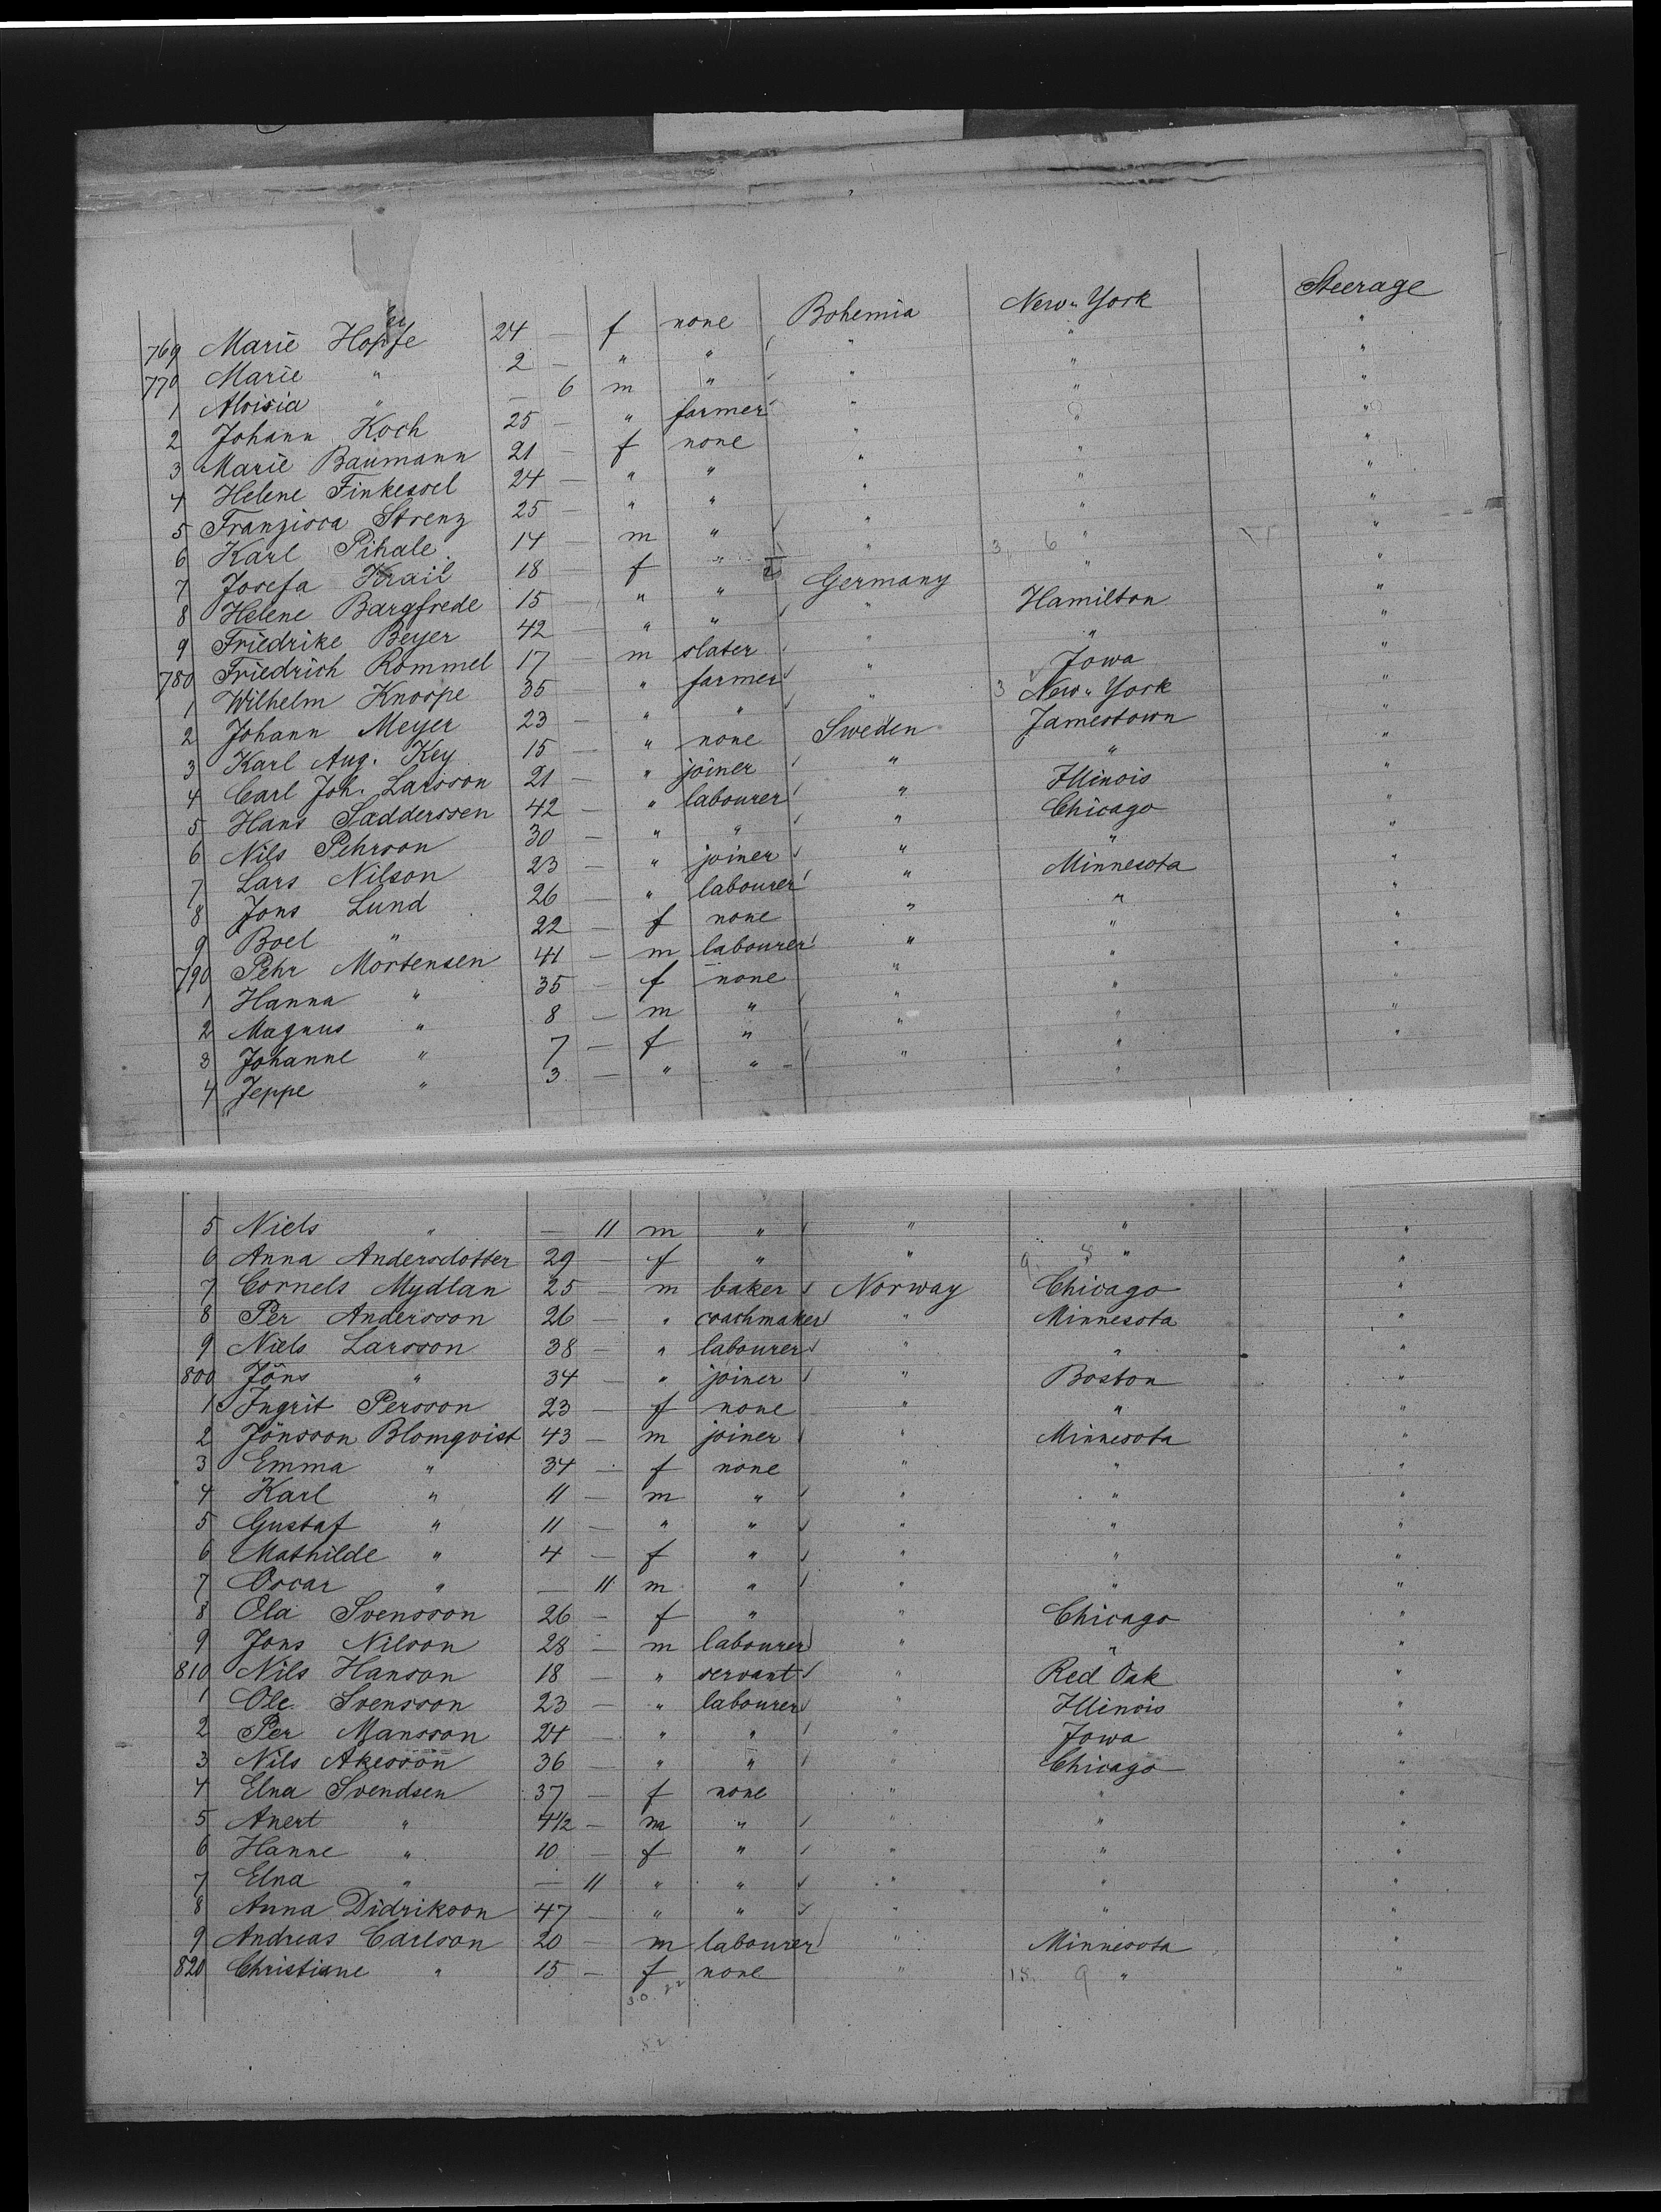 769 Marie Hopfe 24 — f none Bohemia New-York Steerage
770 Marie " 2 — " " " " "
1 Aloisia " — 6 m " " " "
2 Johann Koch 25 — " farmer " " "
3 Marie Baumann 21 — f none " " "
4 Helene Finkessel 24 — " " " " "
5 Franzisca Strenz 25 — " " " " "
6 Karl Pihale 14 — m " " " "
7 Josefa Krail 18 — f " " " "
8 Helene Bargfrede 15 — " " Germany Hamilton "
9 Friedrike Beyer 42 — " " " " "
780 Friedrich Rommel 17 — m slater " Iowa "
1 Wilhelm Knoope 35 — " farmer " New-York "
2 Johann Meyer 23 — " " " Jamestown "
3 Karl Aug. Key 15 — " none Sweden " "
4 Carl Joh. Larsson 21 — " joiner " Illinois "
5 Hans Sadderssen 42 — " labourer " Chicago "
6 Nils Pehrson 30 — " " " " "
7 Lars Nilson 23 — " joiner " Minnesota "
8 Jons Lund 26 — " labourer " " "
9 Boel " 22 — f none " " "
790 Pehr Mortensen 41 — m labourer " " "
1 Hanna " 35 — f none " " "
2 Magnus " 8 — m " " " "
3 Johanne " 7 — f " " " "
4 Jeppe " 3 — " " " "
5 Niels " — 11 m " " " "
6 Anna Andersdotter 29 — f " " " "
7 Cornels Mydlan 25 — m baker Norway Chicago "
8 Per Andersson 26 — " coachmaker " Minnesota "
9 Niels Larsson 38 — " labourer " " "
800 Jöns " 34 — " joiner " Boston "
1 Ingrit Persson 23 — f none " " "
2 Jönsson Blomqvist 43 — m joiner " Minnesota "
3 Emma " 34 — f none " " "
4 Karl " 11 — m " " " "
5 Gustaf " 11 — " " " " "
6 Mathilde " 4 — f " " " "
7 Oscar " — 11 m " " " "
8 Ola Svensson 26 — f " " Chicago "
9 Jons Nilson 28 — m labourer " " "
810 Nils Hanson 18 — " servant " Red Oak "
1 Ole Svensson 23 — " labourer " Illinois "
2 Per Mansson 24 — " " " Iowa "
3 Nils Akesson 36 — " " " Chicago "
4 Elna Svendsen 37 — f none " " "
5 Anert " 4½ — m " " " "
6 Hanne " 10 — f " " " "
7 Elna " — 11 " " " " "
8 Anna Didrikson 47 — " " " " "
9 Andreas Carlson 20 — m labourer " Minnesota "
820 Christiane " 15 — f none " " "